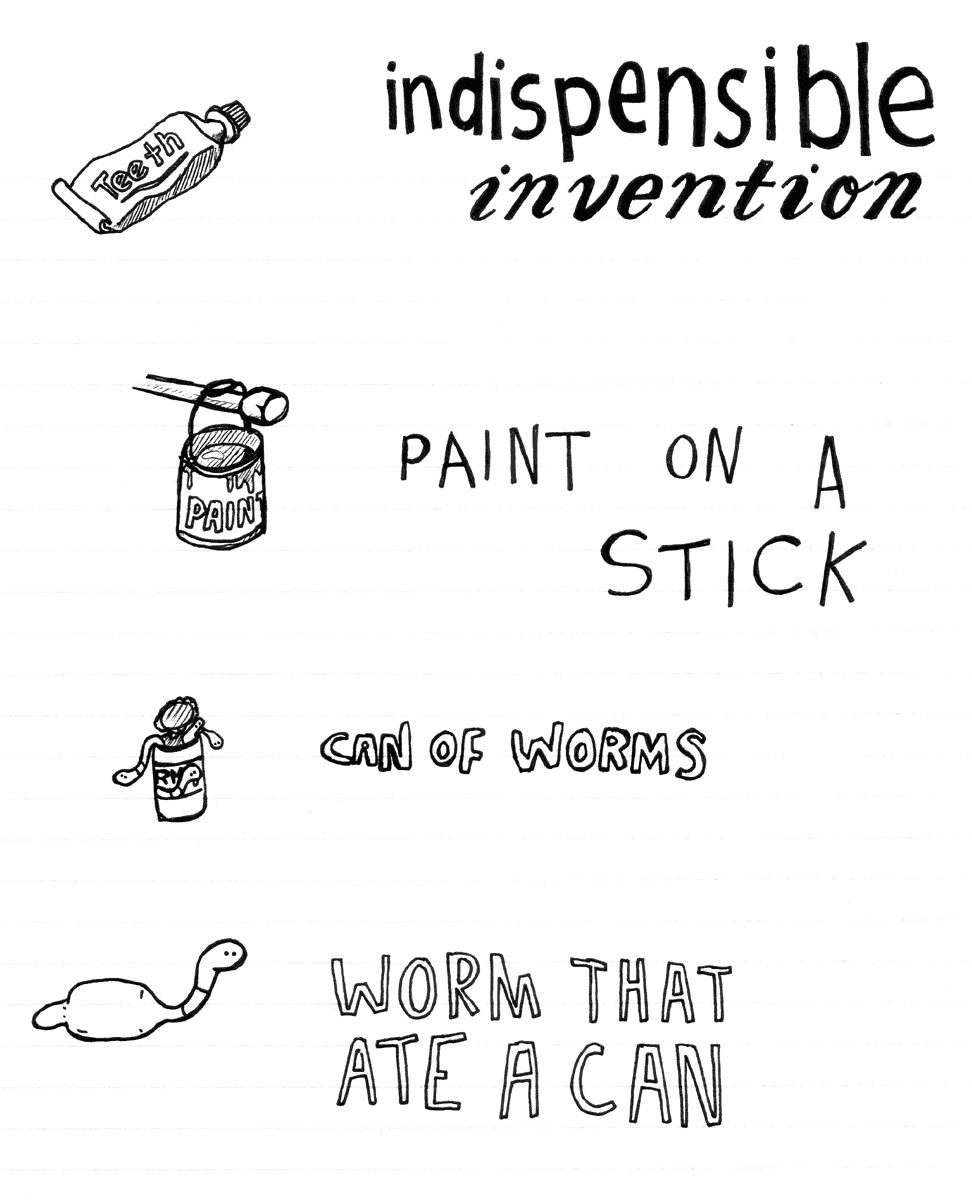 Teeth
indispensible
invention
PAINT
PAINT ON A
STICK
CAN OF WORMS
WORM THAT
ATE A CAN